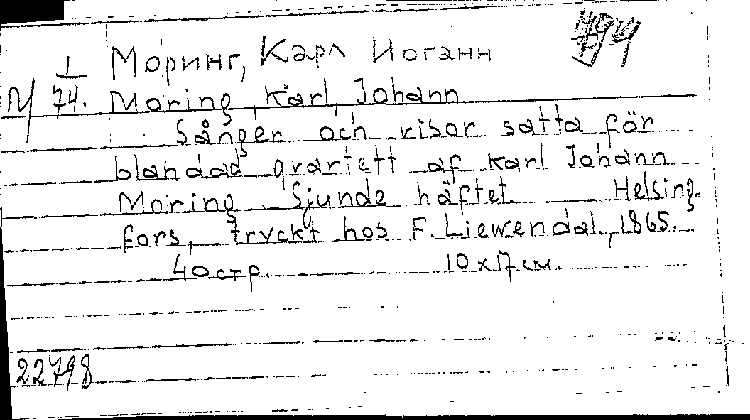 Моринг, Карл Иоганн
1
74.
Moring, Karl, Johann
Sånger och visor satta för
blandad qvartett af Karl Johann
Moring Sjunde häftet Helsing-
fors, tryckt hos F. Liewendal, 1865.
40 стр. 10x17 см.
22798